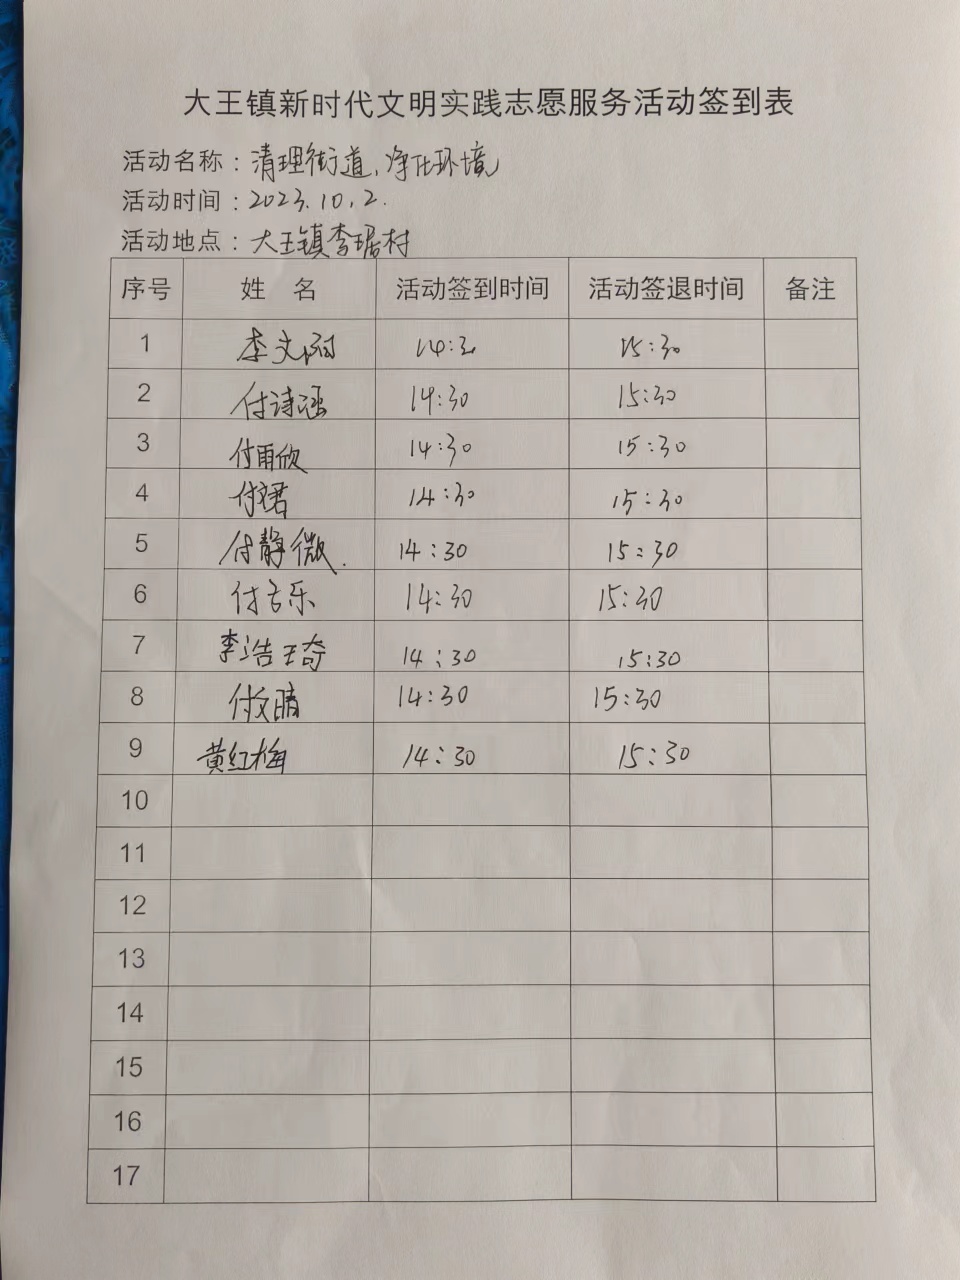 大王镇新时代文明实践志愿服务活动签到表
活动名称：清理街道，净化环境
活动时间：2023.10.2.
活动地点：大王镇李琚村
序号 姓 名 活动签到时间 活动签退时间 备注
1 李文 14:30 15:30
2 付诗涵 14:30 15:30
3 付雨欣 14:30 15:30
4 付珺 14:30 15:30
5 付静微. 14:30 15:30
6 付音乐 14:30 15:30
7 李浩琦 14:30 15:30
8 付文晴 14:30 15:30
9 黄红梅 14:30 15:30
10
11
12
13
14
15
16
17